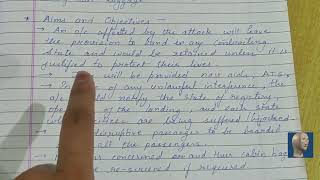 luggage
* Aims and Objectives —
→ An a/c affected by the attack will have
the provision to land in any contracting
State and would be retained unless it is
justified to protect their lives.
will be provided nav aids, ATS
of any unlawful interference, the
notify the State of registry,
of the landing, and each state
are being suffered
disruptive passenger to be boarded
all the passengers.
concerned and their cabin bag
be re-screened if required